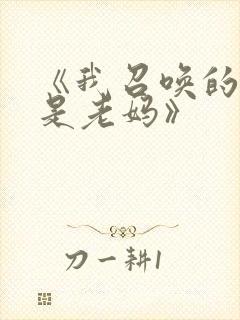 《我召唤的
是老妈》
刀一耕1